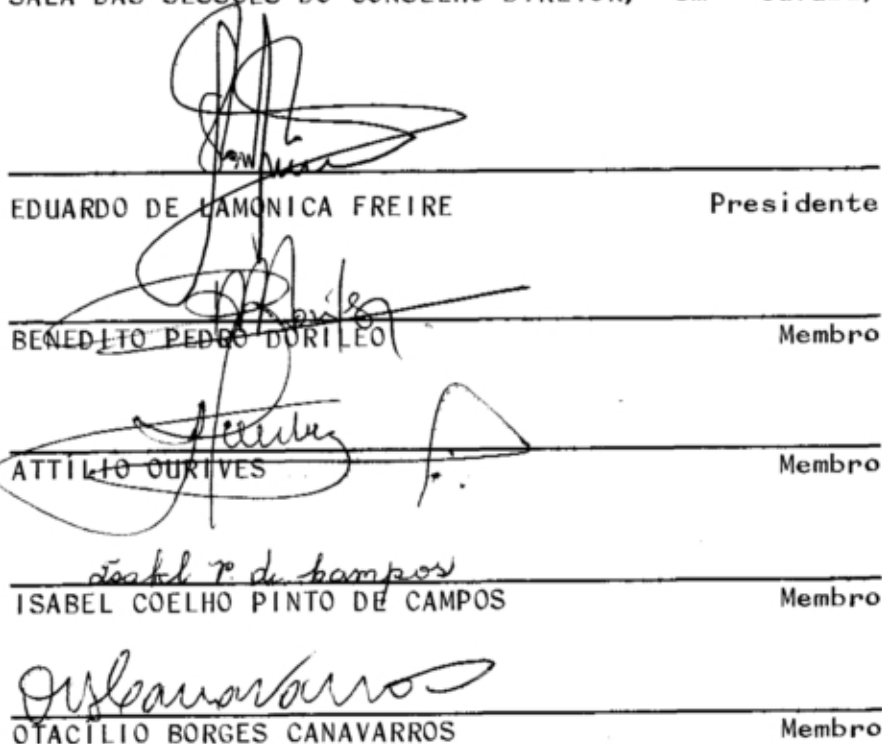 SALA DAS SESSÕES DO CONSELHO DIRETOR, em
EDUARDO DE LAMÔNICA FREIRE Presidente
BENEDITO PEDRO DORILEO Membro
ATTÍLIO OURIVES Membro
Isabel P. de Campos
ISABEL COELHO PINTO DE CAMPOS Membro
OTACÍLIO BORGES CANAVARROS Membro